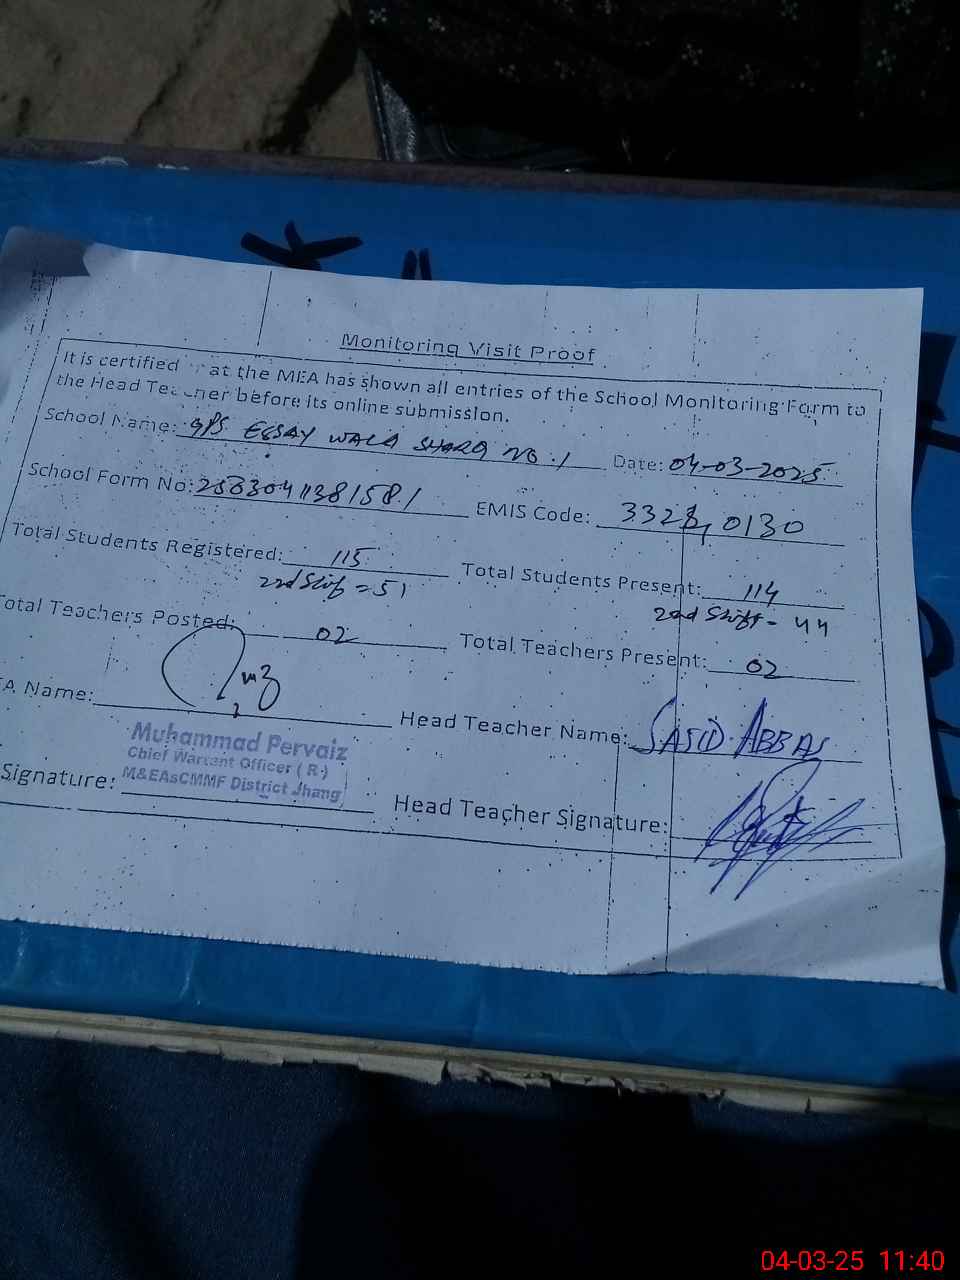 Monitoring Visit Proof
It is certified at the MEA has shown all entries of the School Monitoring Form to
the Head Teacher before its online submission.
School Name: GPS ESSAY WALA SHARQ NO.1 Date: 04-03-2025
School Form No: 25030411381581 EMIS Code: 33280130
Total Students Registered: 115 Total Students Present: 114
2nd Shift = 51 2nd Shift - 44
Total Teachers Posted: 02 Total Teachers Present: 02
A Name: Head Teacher Name: SAJID ABBAS
Muhammad Pervaiz
Chief Warrant Officer (R)
M&EAsCMMF District Jhang
Signature: Head Teacher Signature:
04-03-25 11:40